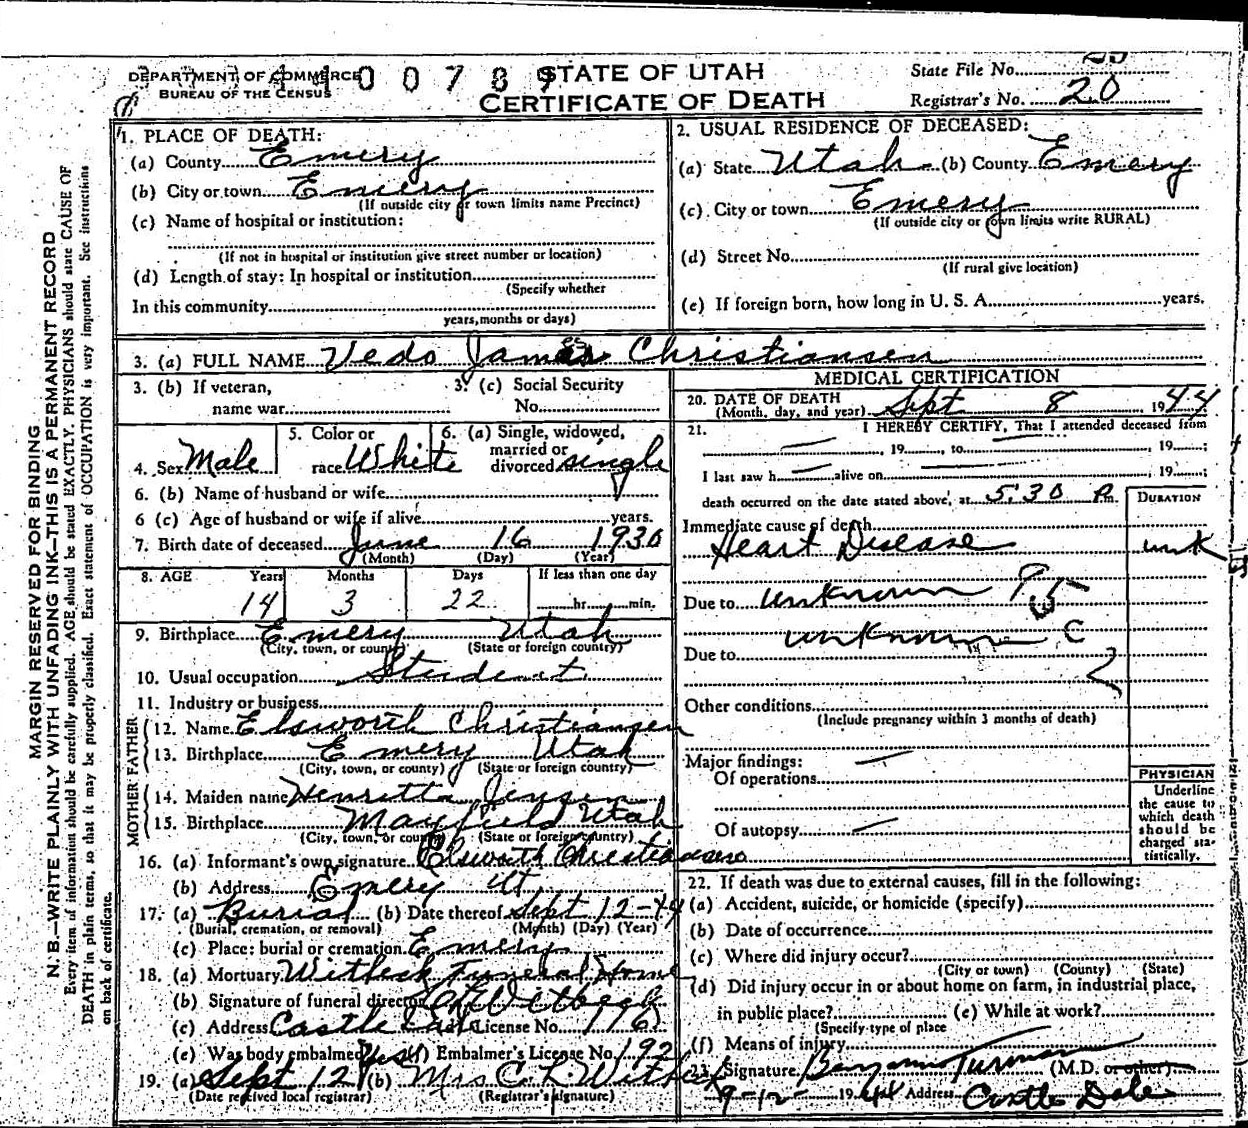 DEPARTMENT OF COMMERCE
BUREAU OF THE CENSUS
STATE OF UTAH
CERTIFICATE OF DEATH
State File No.
Registrar's No. 20
MARGIN RESERVED FOR BINDING
N. B.—WRITE PLAINLY WITH UNFADING INK—THIS IS A PERMANENT RECORD
Every item of information should be carefully supplied. AGE should be stated EXACTLY. PHYSICIANS should state CAUSE OF
DEATH in plain terms, so that it may be properly classified. Exact statement of OCCUPATION is very important. See instructions
on back of certificate.
1. PLACE OF DEATH:
(a) County Emery
(b) City or town Emery
(If outside city or town limits name Precinct)
(c) Name of hospital or institution:
(If not in hospital or institution give street number or location)
(d) Length of stay: In hospital or institution
(Specify whether
In this community
years, months or days)
2. USUAL RESIDENCE OF DECEASED:
(a) State Utah (b) County Emery
(c) City or town Emery
(If outside city or town limits write RURAL)
(d) Street No.
(If rural give location)
(e) If foreign born, how long in U. S. A. years.
3. (a) FULL NAME Vedo James Christiansen
3. (b) If veteran,
name war
3. (c) Social Security
No.
4. Sex Male
5. Color or
race White
6. (a) Single, widowed,
married or
divorced single
6. (b) Name of husband or wife
6 (c) Age of husband or wife if alive years.
7. Birth date of deceased June 16 1930
(Month) (Day) (Year)
8. AGE Years Months Days If less than one day
14 3 22 hr. min.
9. Birthplace Emery Utah
(City, town, or county) (State or foreign country)
10. Usual occupation Student
11. Industry or business
FATHER
12. Name Elsworth Christiansen
13. Birthplace Emery Utah
(City, town, or county) (State or foreign country)
MOTHER
14. Maiden name Henritta Jensen
15. Birthplace Mayfield Utah
(City, town, or county) (State or foreign country)
16. (a) Informant's own signature Elsworth Christiansen
(b) Address Emery Ut
17. (a) Burial (b) Date thereof Sept 12-44
(Burial, cremation, or removal) (Month) (Day) (Year)
(c) Place: burial or cremation Emery
18. (a) Mortuary Witbeck Funeral Home
(b) Signature of funeral director Witbeck
(c) Address Castle Dale License No.
(e) Was body embalmed Yes Embalmer's License No. 192
19. (a) Sept 12 (b) Mrs C. L. Witbeck
(Date received local registrar) (Registrar's signature)
MEDICAL CERTIFICATION
20. DATE OF DEATH
(Month, day, and year) Sept 8 1944
21. I HEREBY CERTIFY, That I attended deceased from
— , 19 , to — , 19 ;
I last saw h — alive on — , 19 ;
death occurred on the date stated above, at 5:30 P.m.
DURATION
Immediate cause of death
Heart Disease unk
Due to unknown
unknown
Due to
Other conditions
(Include pregnancy within 3 months of death)
Major findings: —
Of operations
Of autopsy —
PHYSICIAN
Underline
the cause to
which death
should be
charged sta-
tistically.
22. If death was due to external causes, fill in the following:
(a) Accident, suicide, or homicide (specify)
(b) Date of occurrence
(c) Where did injury occur?
(City or town) (County) (State)
(d) Did injury occur in or about home on farm, in industrial place,
in public place? (e) While at work?
(Specify type of place
(f) Means of injury
23. Signature Benjamin Turman (M.D. or other)
9-12- 1944 Address Castle Dale